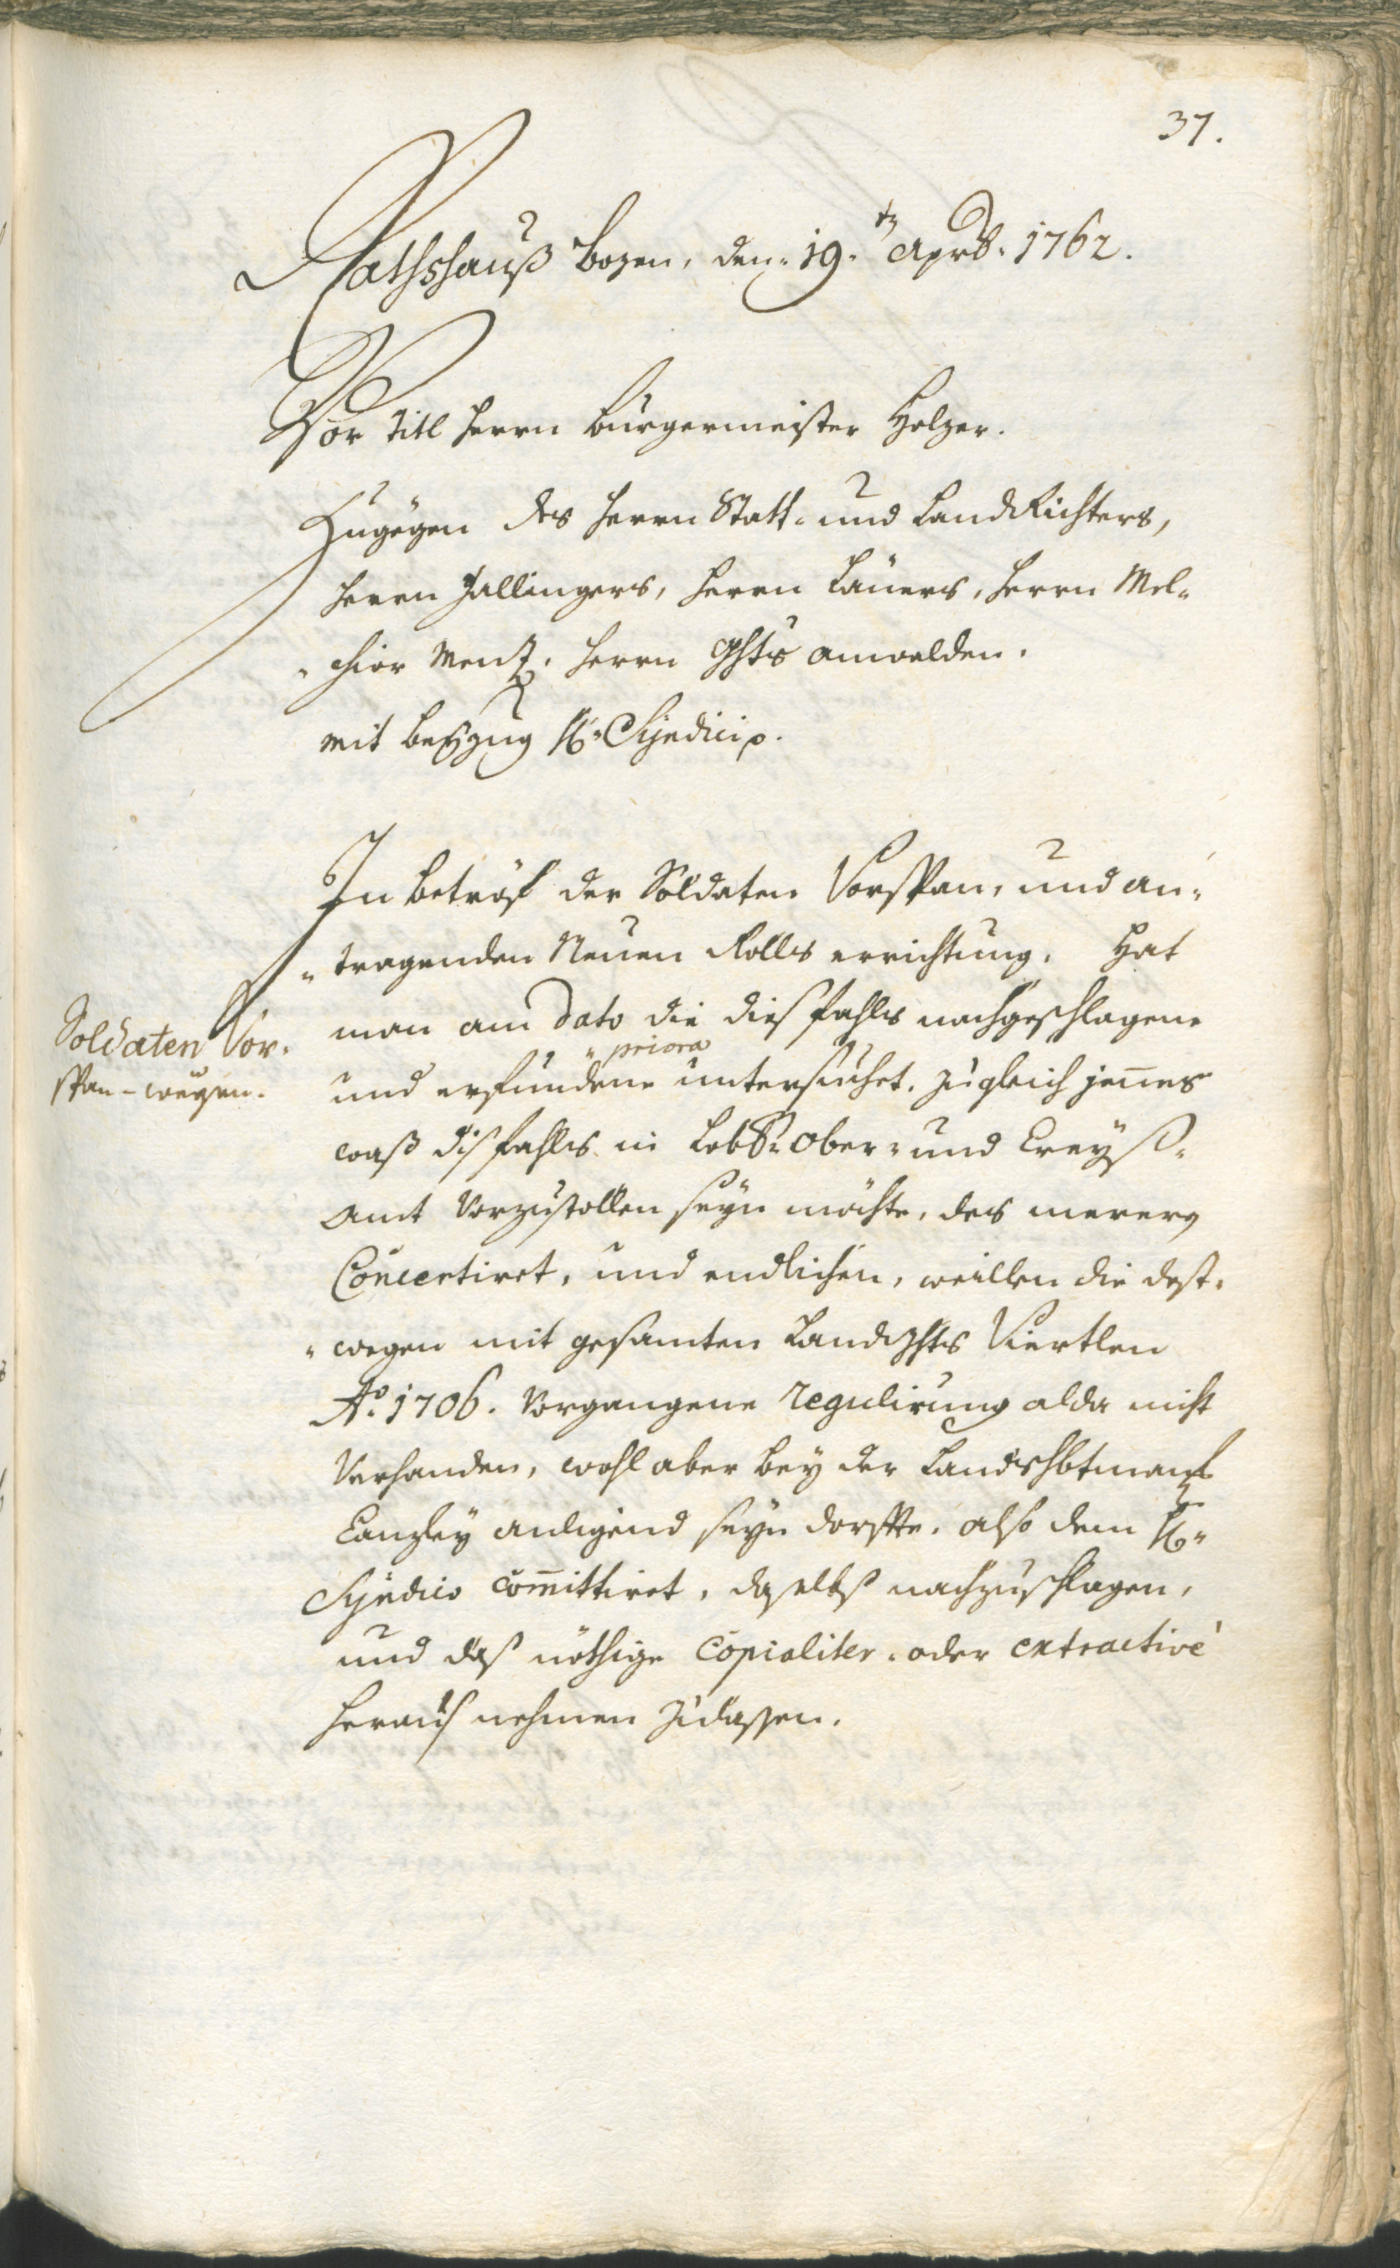 37.
Rathshauß Bozen, den 19.ten Aprill. 1762.
Vor Titl Herrn Bürgermeister Holzer.
Zugegen des Herrn Statt- und LandRichters,
Herrn Jallingers, Herrn Lauers, Herrn Mel-
chior Menz, Herrn Ghts anwalden.
mit beyzug H. Syndici p.
In betröf der Soldaten Vorspan, und an-
tragenden Neuen Rolls errichtung. Hat
man am Dato die diesfahls nachgeschlagene
Soldaten Vor-
span-wegen.
priora
und erfundene untersuchet. zugleich jennes
waß disfahls in Lobl. Ober- und Creyß-
Amt vorzustöllen seyn möchte, des merers
Concertiret, und endlichen, weillen die dest-
wegen mit gesamten Landghts Viertlen
Ao. 1706. vorgangene regulirung alda nicht
Verhanden, wohl aber bey der Landtshbtmans
Canzley anligend seyn dorffte. also dem H.
Syndico committiret, daselbst nachzuschlagen,
und daß nöthige Copialiter- oder extractivè
heraus nehmen zulassen.